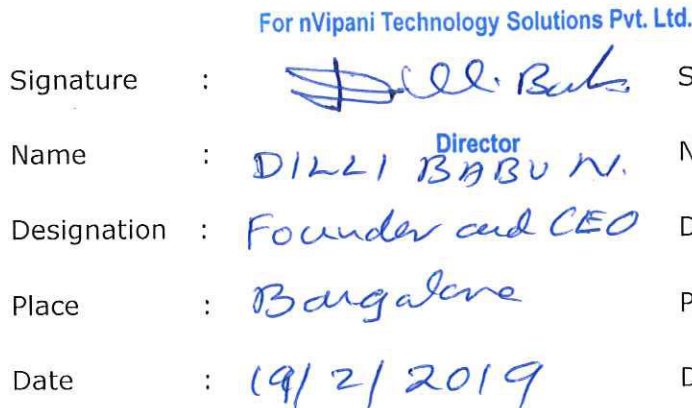 For nVipani Technology Solutions Pvt. Ltd.
Signature : Dilli Babu S
Director
Name : DILLI BABU N. N
Designation : Founder and CEO D
Place : Bangalore P
Date : 19/2/2019 D